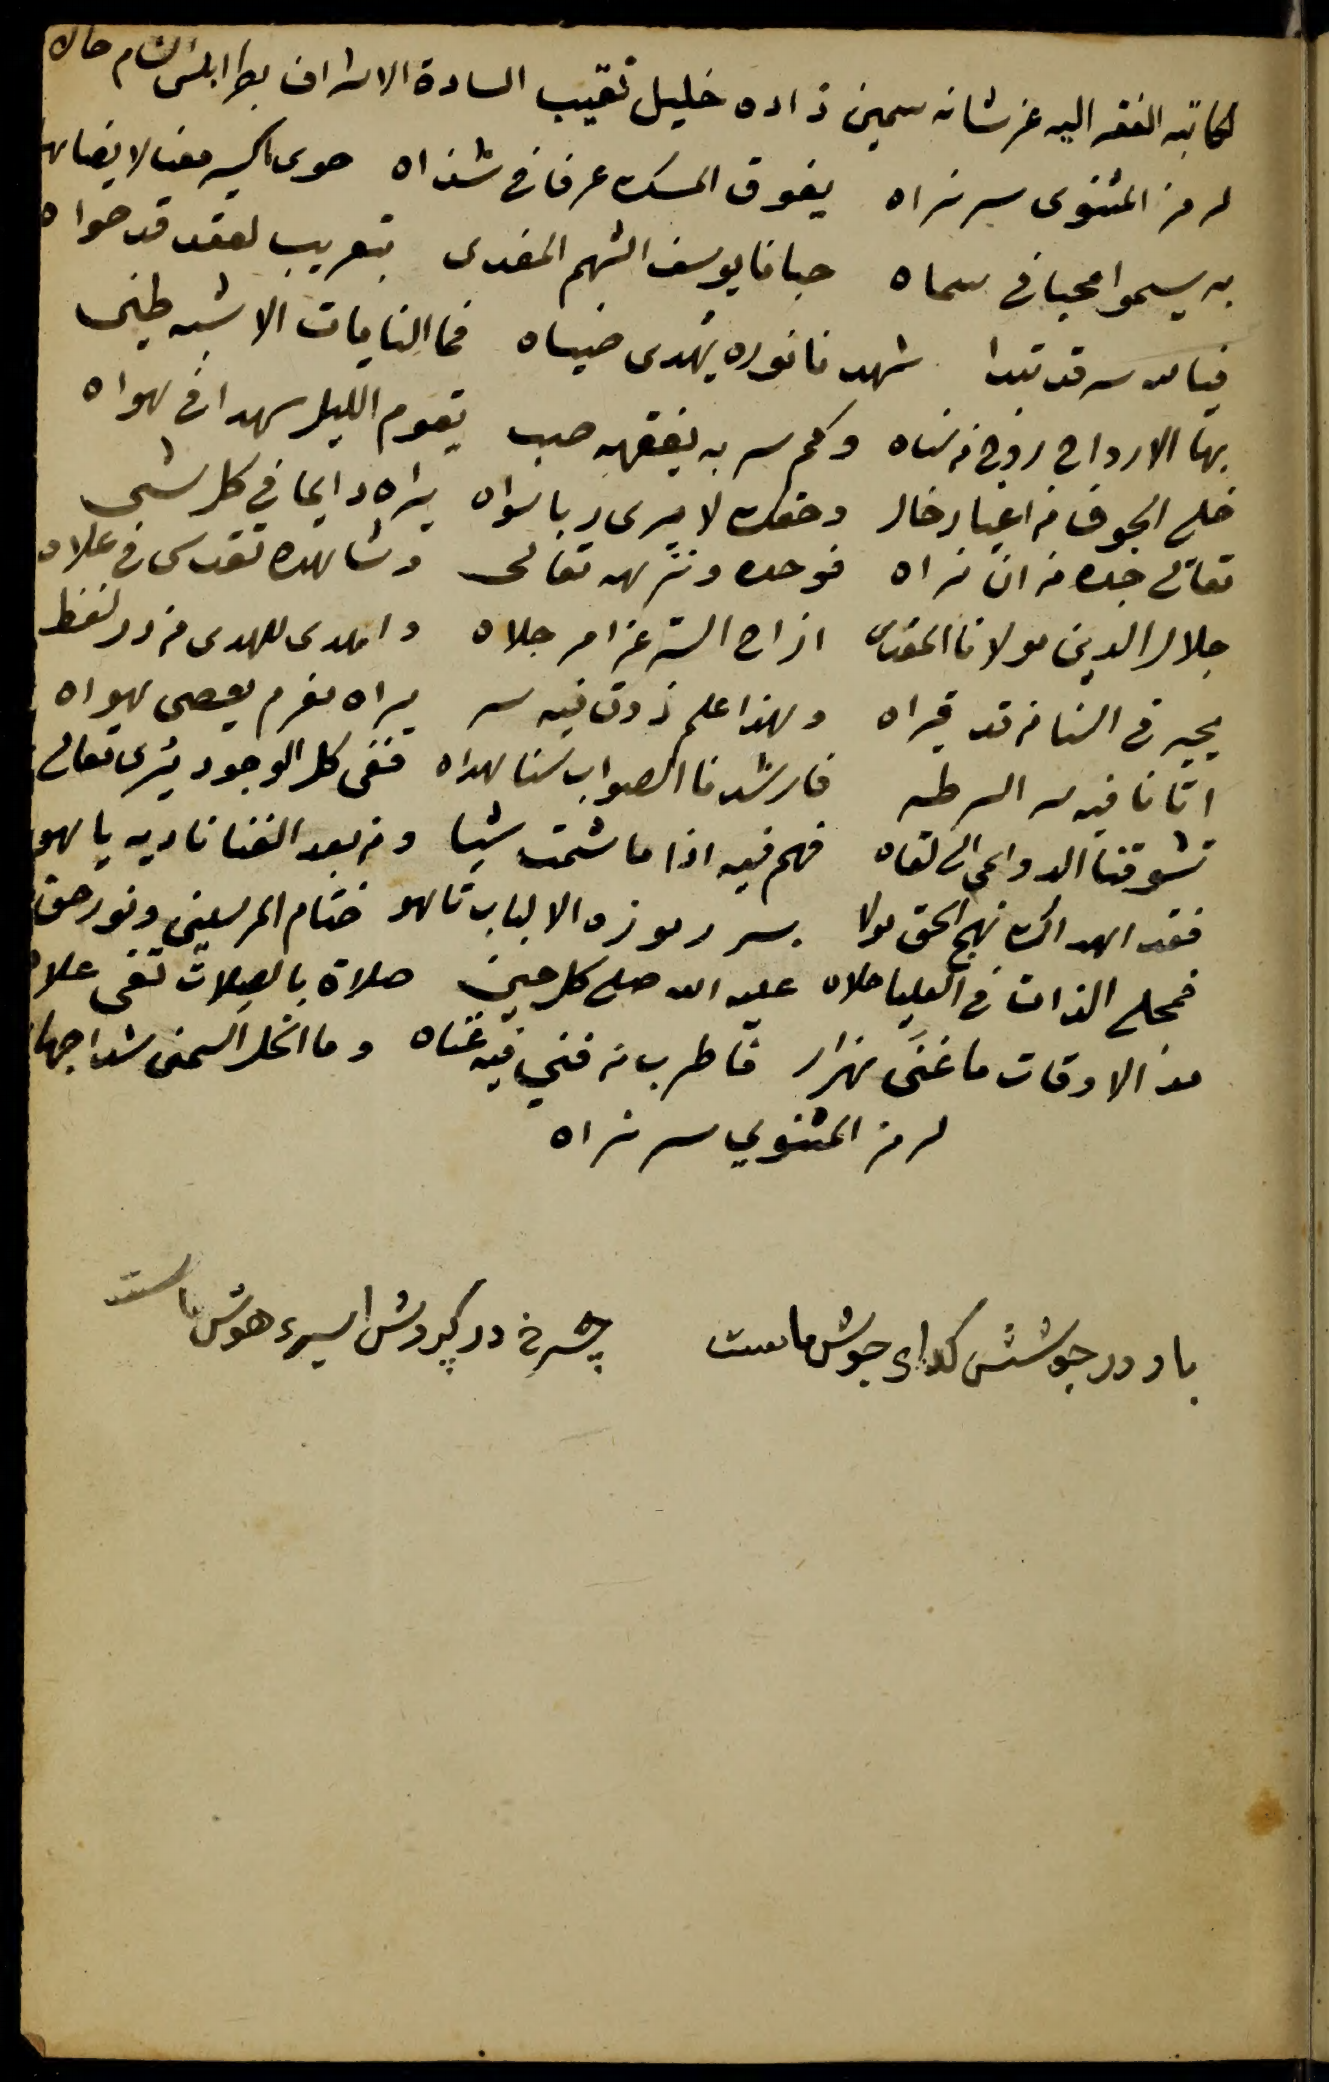 لكاتبه الفقير اليه عز شانه سمين زاده خليل نقيب السادة الاشراف بطرابلس الشام حالا
لرمز المثنوى سر نراه يفوق المسك عرفا فى شذاه حوى اكسير معنا لا يضاها
به يسموا محبا فى سماه حبانا يوسف الشهم المفدى بتعريب لعقد قد حواه
فيالله سر قد تبدا شهدنا نوره يهدى ضياه فما النايات الا شبه طير
بها الارواح روح من سناه وكم سر به يفقهه صب يقوم الليل سهدا فى هواه
خلى الجوف من اغيار خال وحقك لا يرى ربا سواه يراه دايما فى كل شى
تعالى جده من ان نراه فوحده ونزهه تعالى وشاهده تقدس فى علاه
جلال الدين مولانا المقدس ازاح الستر عن امر جلاه واهدى للهدى من در لفظ
يحير فى السنا من قد قراه وهذا علم ذوق فيه سر يراه مغرم يعصى هواه
اتانا فيه سر السر طه فارشدنا الصواب سنا هداه ففى كل الوجود يرى تعالى
تشوقنا الدواعى الى لقاه فهم فيه اذا ما شمت شيا ومن بعد الفنا ناديه يا هو
فقد اهداك نهج الحق مولا بسر رموزه الالباب تاهو ختام المرسلين ونور حق
فمجلى الذات فى العليا حلاه عليه الله صلى كل حين صلاة بالصلات تفى علاه
مد الاوقات ما غنى هزار فاطرب من فنى فيه غناه وما انحل السمين شدا جهارا
لرمز المثنوي سر نراه
باده در جوشش كداى جوش ماست چرخ در كردش اسير هوش ماست